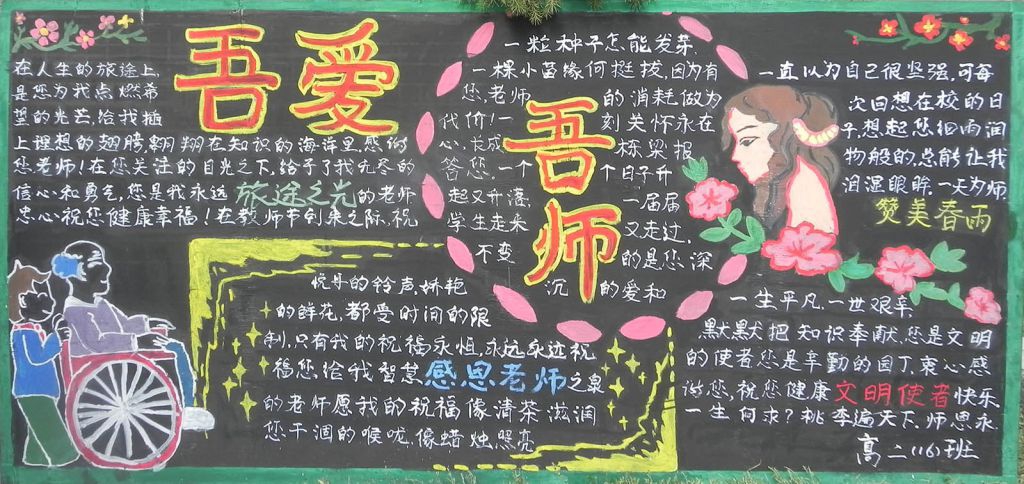 吾爱
吾师
在人生的旅途上,
是您为我点燃希
望的光芒,给我插
上理想的翅膀翱翔在知识的海洋里,感谢
您老师!在您关注的目光之下,给予了我无尽的
信心和勇气,您是我永远旅途之光的老师
忠心祝您健康幸福!在教师节到来之际,祝
一粒种子怎能发芽,
一棵小苗缘何挺拔,因为有
您,老师 的消耗做为
代价!一 刻关怀永在
心,长成 栋梁报
答您,一个 个日子升
起又升落, 一届届
学生走来 又走过,
不变 的是您深
沉 的爱和
一直以为自己很坚强,可每
次回想在校的日
子,想起您细雨润
物般的,总能让我
泪湿眼眸,一天为师
赞美春雨
悦耳的铃声,娇艳
的鲜花,都受时间的限
制,只有我的祝福永恒,永远永远祝
福您,给我智慧感恩老师之泉
的老师愿我的祝福像清茶滋润
您干涸的喉咙,像蜡烛照亮
一生平凡,一世艰辛
默默把知识奉献,您是文明
的使者您是辛勤的园丁,衷心感
谢您,祝您健康文明使者快乐
一生何求?桃李遍天下,师恩永
高二(16)班